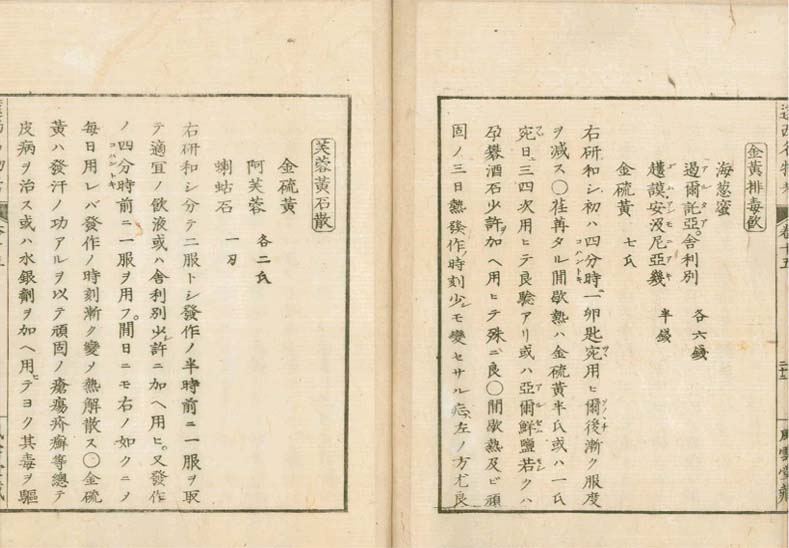 金黄排毒飲
海葱蜜
過爾託亞舍利別 各六錢
アルタアー
護謨安没尼亞幾 半錢
ゴムアンモニアキ
金硫黄 七氏
右研和シ初ハ四分時一卵匙宛用ヒ爾後漸ク服度
コハントキ
ヲ減ス〇荏苒タル間歇熱ハ金硫黄半氏或ハ一氏
宛日三四次用ヒテ良驗アリ或ハ亞爾鮮鹽若クハ
孕礬酒石少許加ヘ用ヒテ殊ニ良〇間歇熱及ビ頑
固ノ三日熱發作ノ時刻少シモ變セサル 左ノ方尤良
芙蓉黄石散
金硫黄
阿芙蓉 各二氏
蝲蛄石 一刃
右研和シ分テ二服トシ發作ノ半時前ニ一服ヲ取
テ適宜ノ飲液或ハ舍利別少許ニ加ヘ用ヒ又發作
ノ四分時前ニ一服ヲ用フ間日ニモ右ノ如クニノ
コハントキ
毎日用レバ發作ノ時刻漸ク變ヲ熱解散ス〇金硫
黄ハ發汗ノ功アルヲ以テ頑固ノ瘡瘍疥癬等總テ
皮病ヲ治ス或ハ水銀劑ヲ加ヘ用ヒテヨク其毒ヲ驅